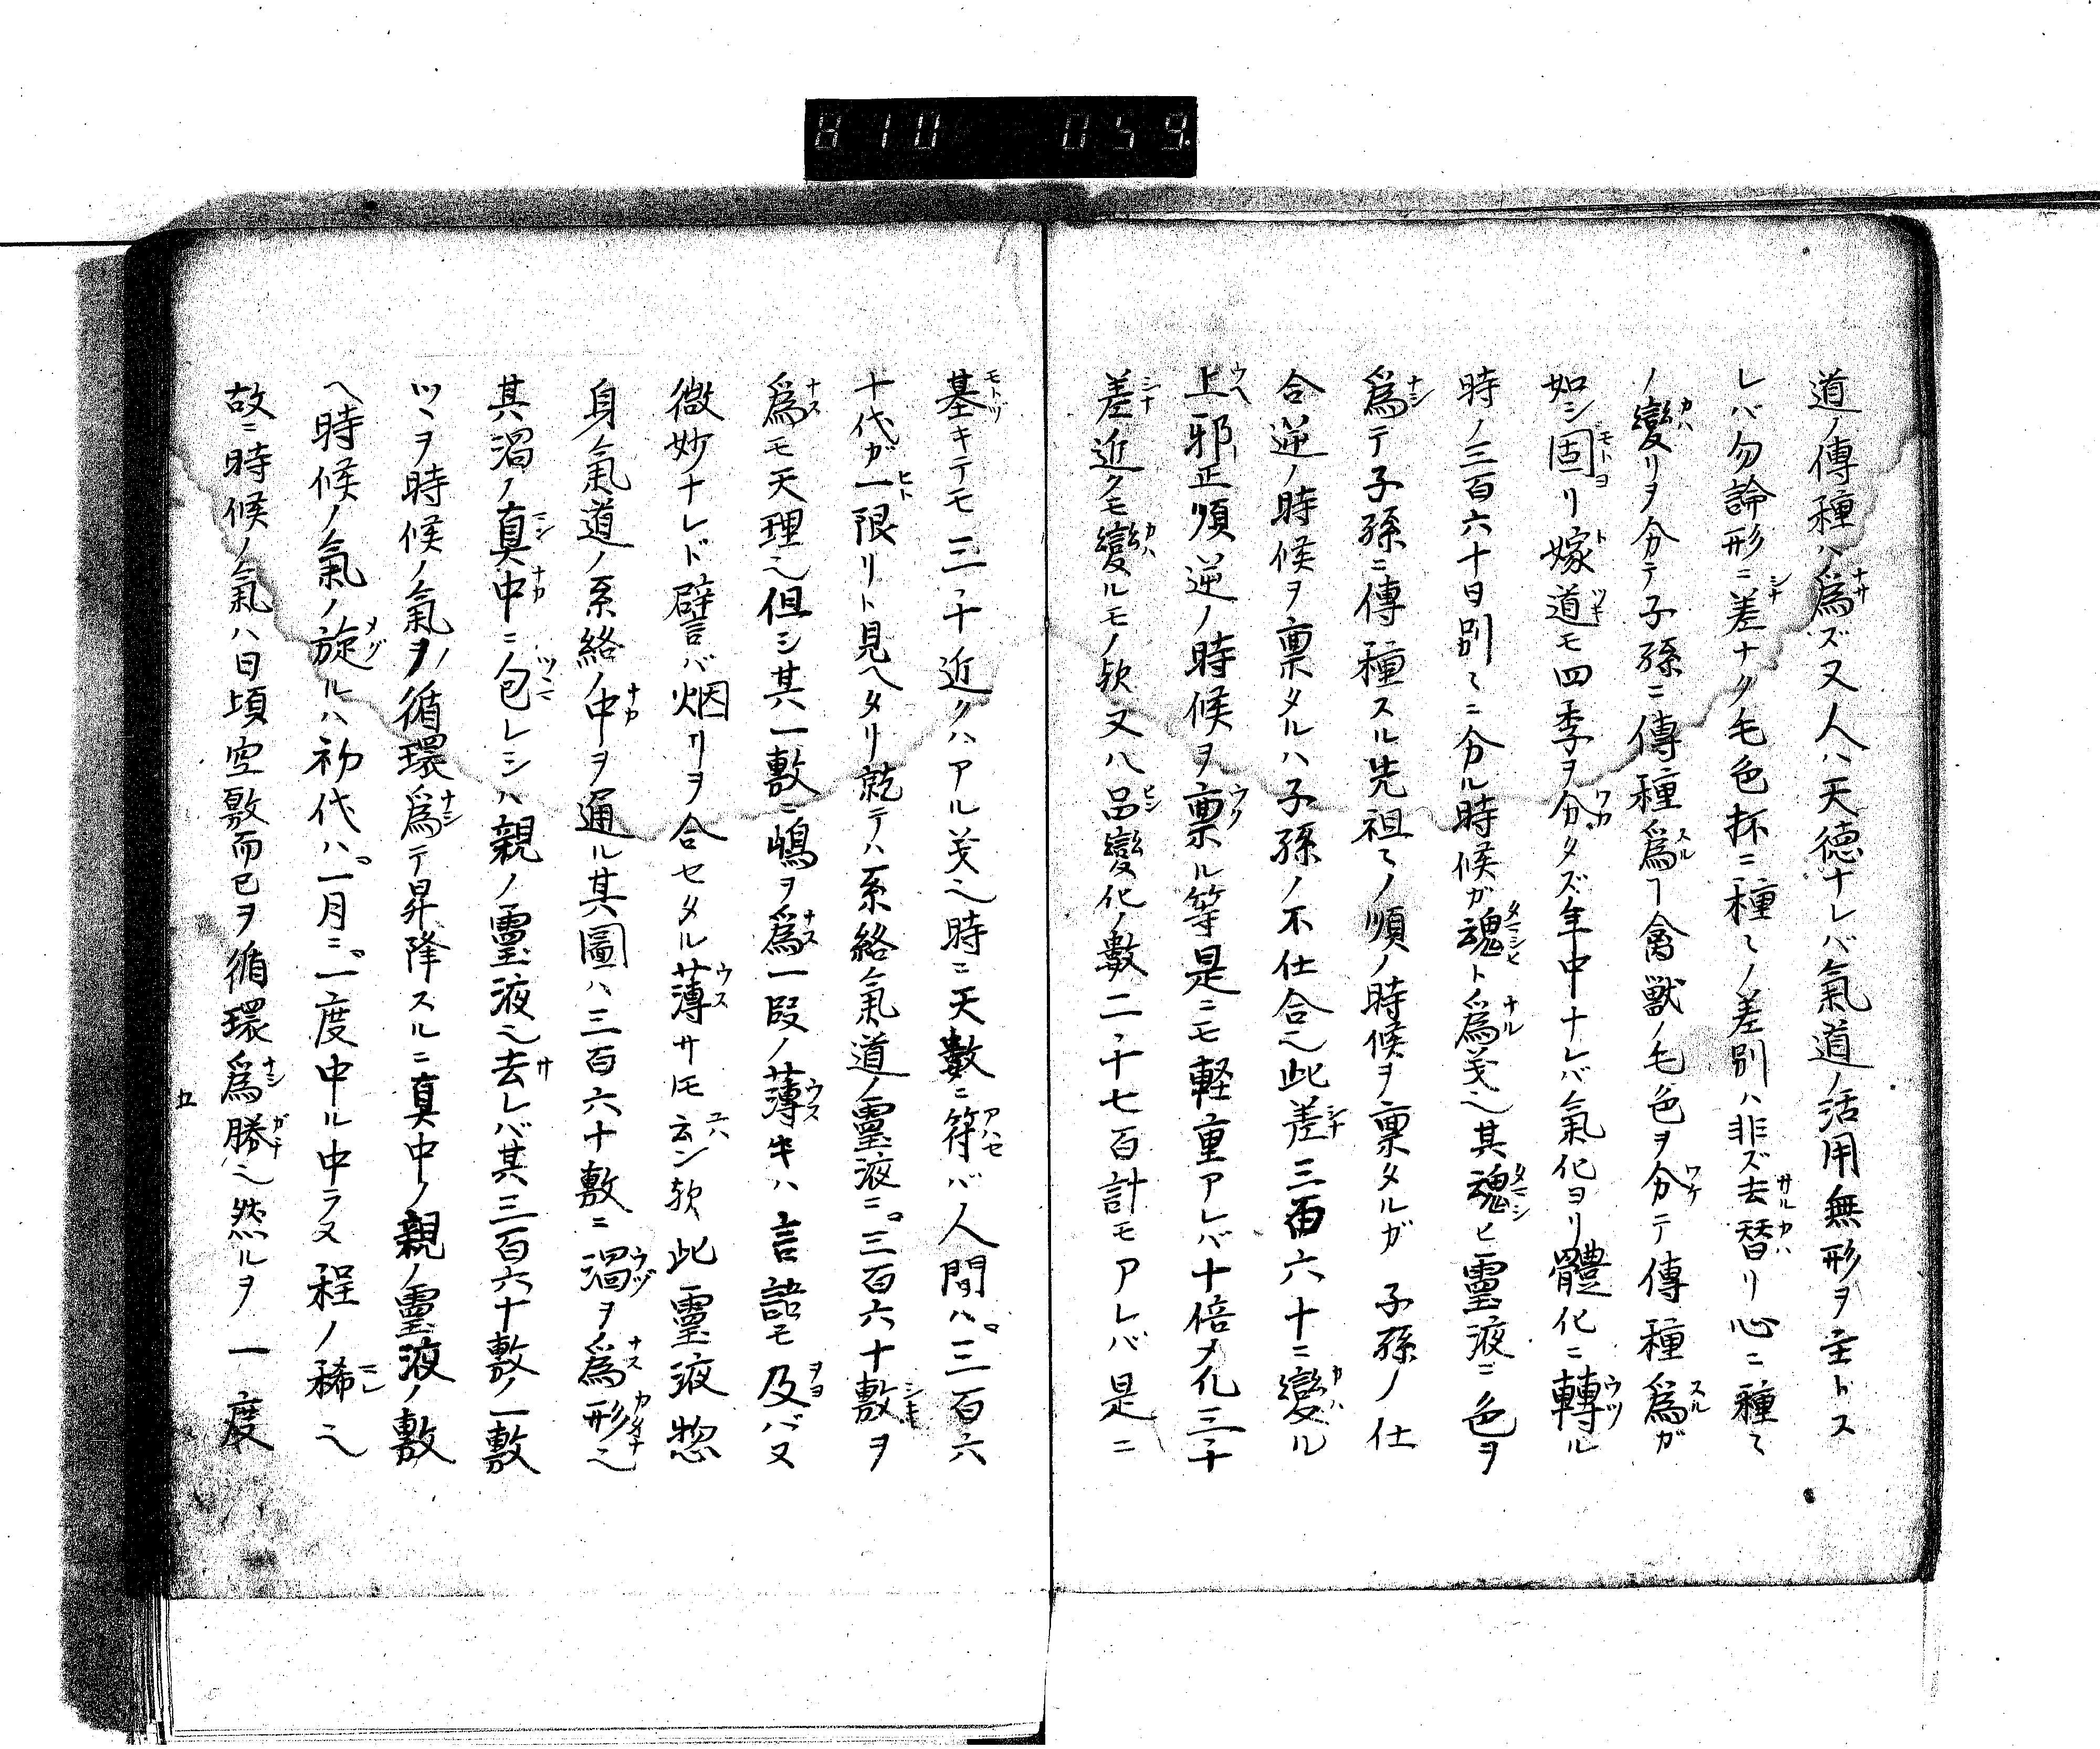 810 059.
道ノ傳種ハ爲ズ又人ハ天德ナレバ氣道ノ活用無形ヲ主トス
レバ勿論形ニ差ナク毛色抔ニ種々ノ差別ハ非ズ去替リ心ニ種々
ノ變リヲ分テ子孫ニ傳種爲ヿ禽獸ノ毛色ヲ分テ傳種爲ガ
如シ固リ嫁道モ四季ヲ分タズ年中ナレバ氣化ヨリ體化ニ轉ル
時ノ三百六十日別々ニ分ル時候ガ魂ト爲義也其魂ヒ靈液ニ色ヲ
爲テ子孫ニ傳種スル先祖々ノ順ノ時候ヲ稟タルガ子孫ノ仕
合逆ノ時候ヲ稟タルハ子孫ノ不仕合也此差三百六十ニ變ル
上邪正順逆ノ時候ヲ稟ル等是ニモ軽重アレバ十倍〆化三千
差近クモ變ルモノ欤又八品變化ノ數二千七百計モアレバ是ニ
基キテモ三千近クハアル義也時ニ天數ニ符バ人間ハ三百六
十代ガ一限リト見ヘタリ就テハ系絡氣道ノ靈液ニ三百六十敷ヲ
爲モ天理也但シ其一敷ニ嶋ヲ爲一段ノ薄キハ言語モ及バヌ
微妙ナレド譬バ烟リヲ合セタル薄サ𪜈云ン欤此靈液惣
身氣道ノ系絡ノ中ヲ通ル其圖ハ三百六十敷ニ渦ヲ爲形也
其渦ノ真中ニ包レシハ親ノ靈液也去レバ其三百六十敷ノ一敷
ツヽヲ時候ノ氣ヲノ循環爲テ昇降スルニ真中ノ親ノ靈液ノ敷
ヘ時候ノ氣ノ旋ルハ初代ハ一月ニ一度中ル中ラヌ程ノ稀也
故ニ時候ノ氣ハ日頃空敷而已ヲ循環爲勝也然ルヲ一度